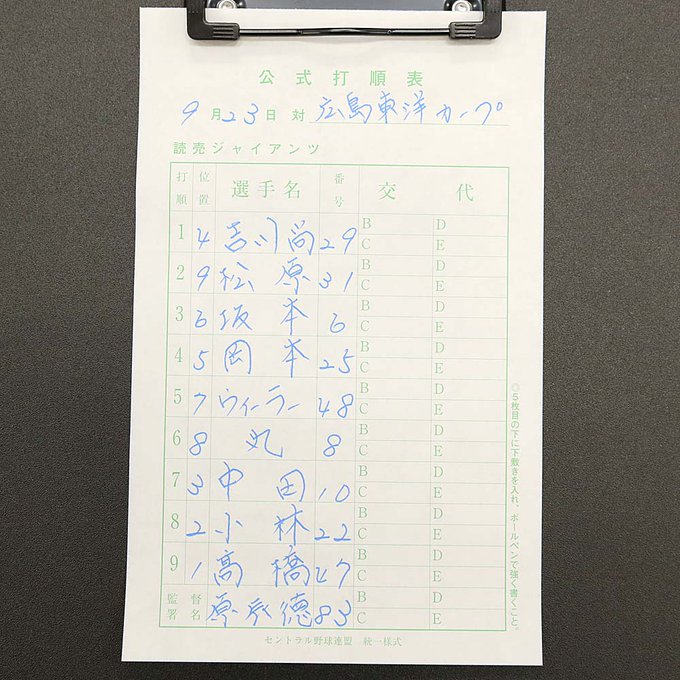 公式打順表
9月23日 対 広島東洋カープ
読売ジャイアンツ
打順 位置 選手名 番号 交代
1 4 吉川尚 29 B D
C E
2 9 松原 31 B D
C E
3 6 坂本 6 B D
C E
4 5 岡本 25 B D
C E
5 7 ウィーラー 48 B D
C E
6 8 丸 8 B D
C E
7 3 中田 10 B D
C E
8 2 小林 22 B D
C E
9 1 高橋 47 B D
C E
監督署名 原辰徳 83 B D
C E
◎5枚目の下に下敷きを入れ、ボールペンで強く書くこと。
セントラル野球連盟 統一様式